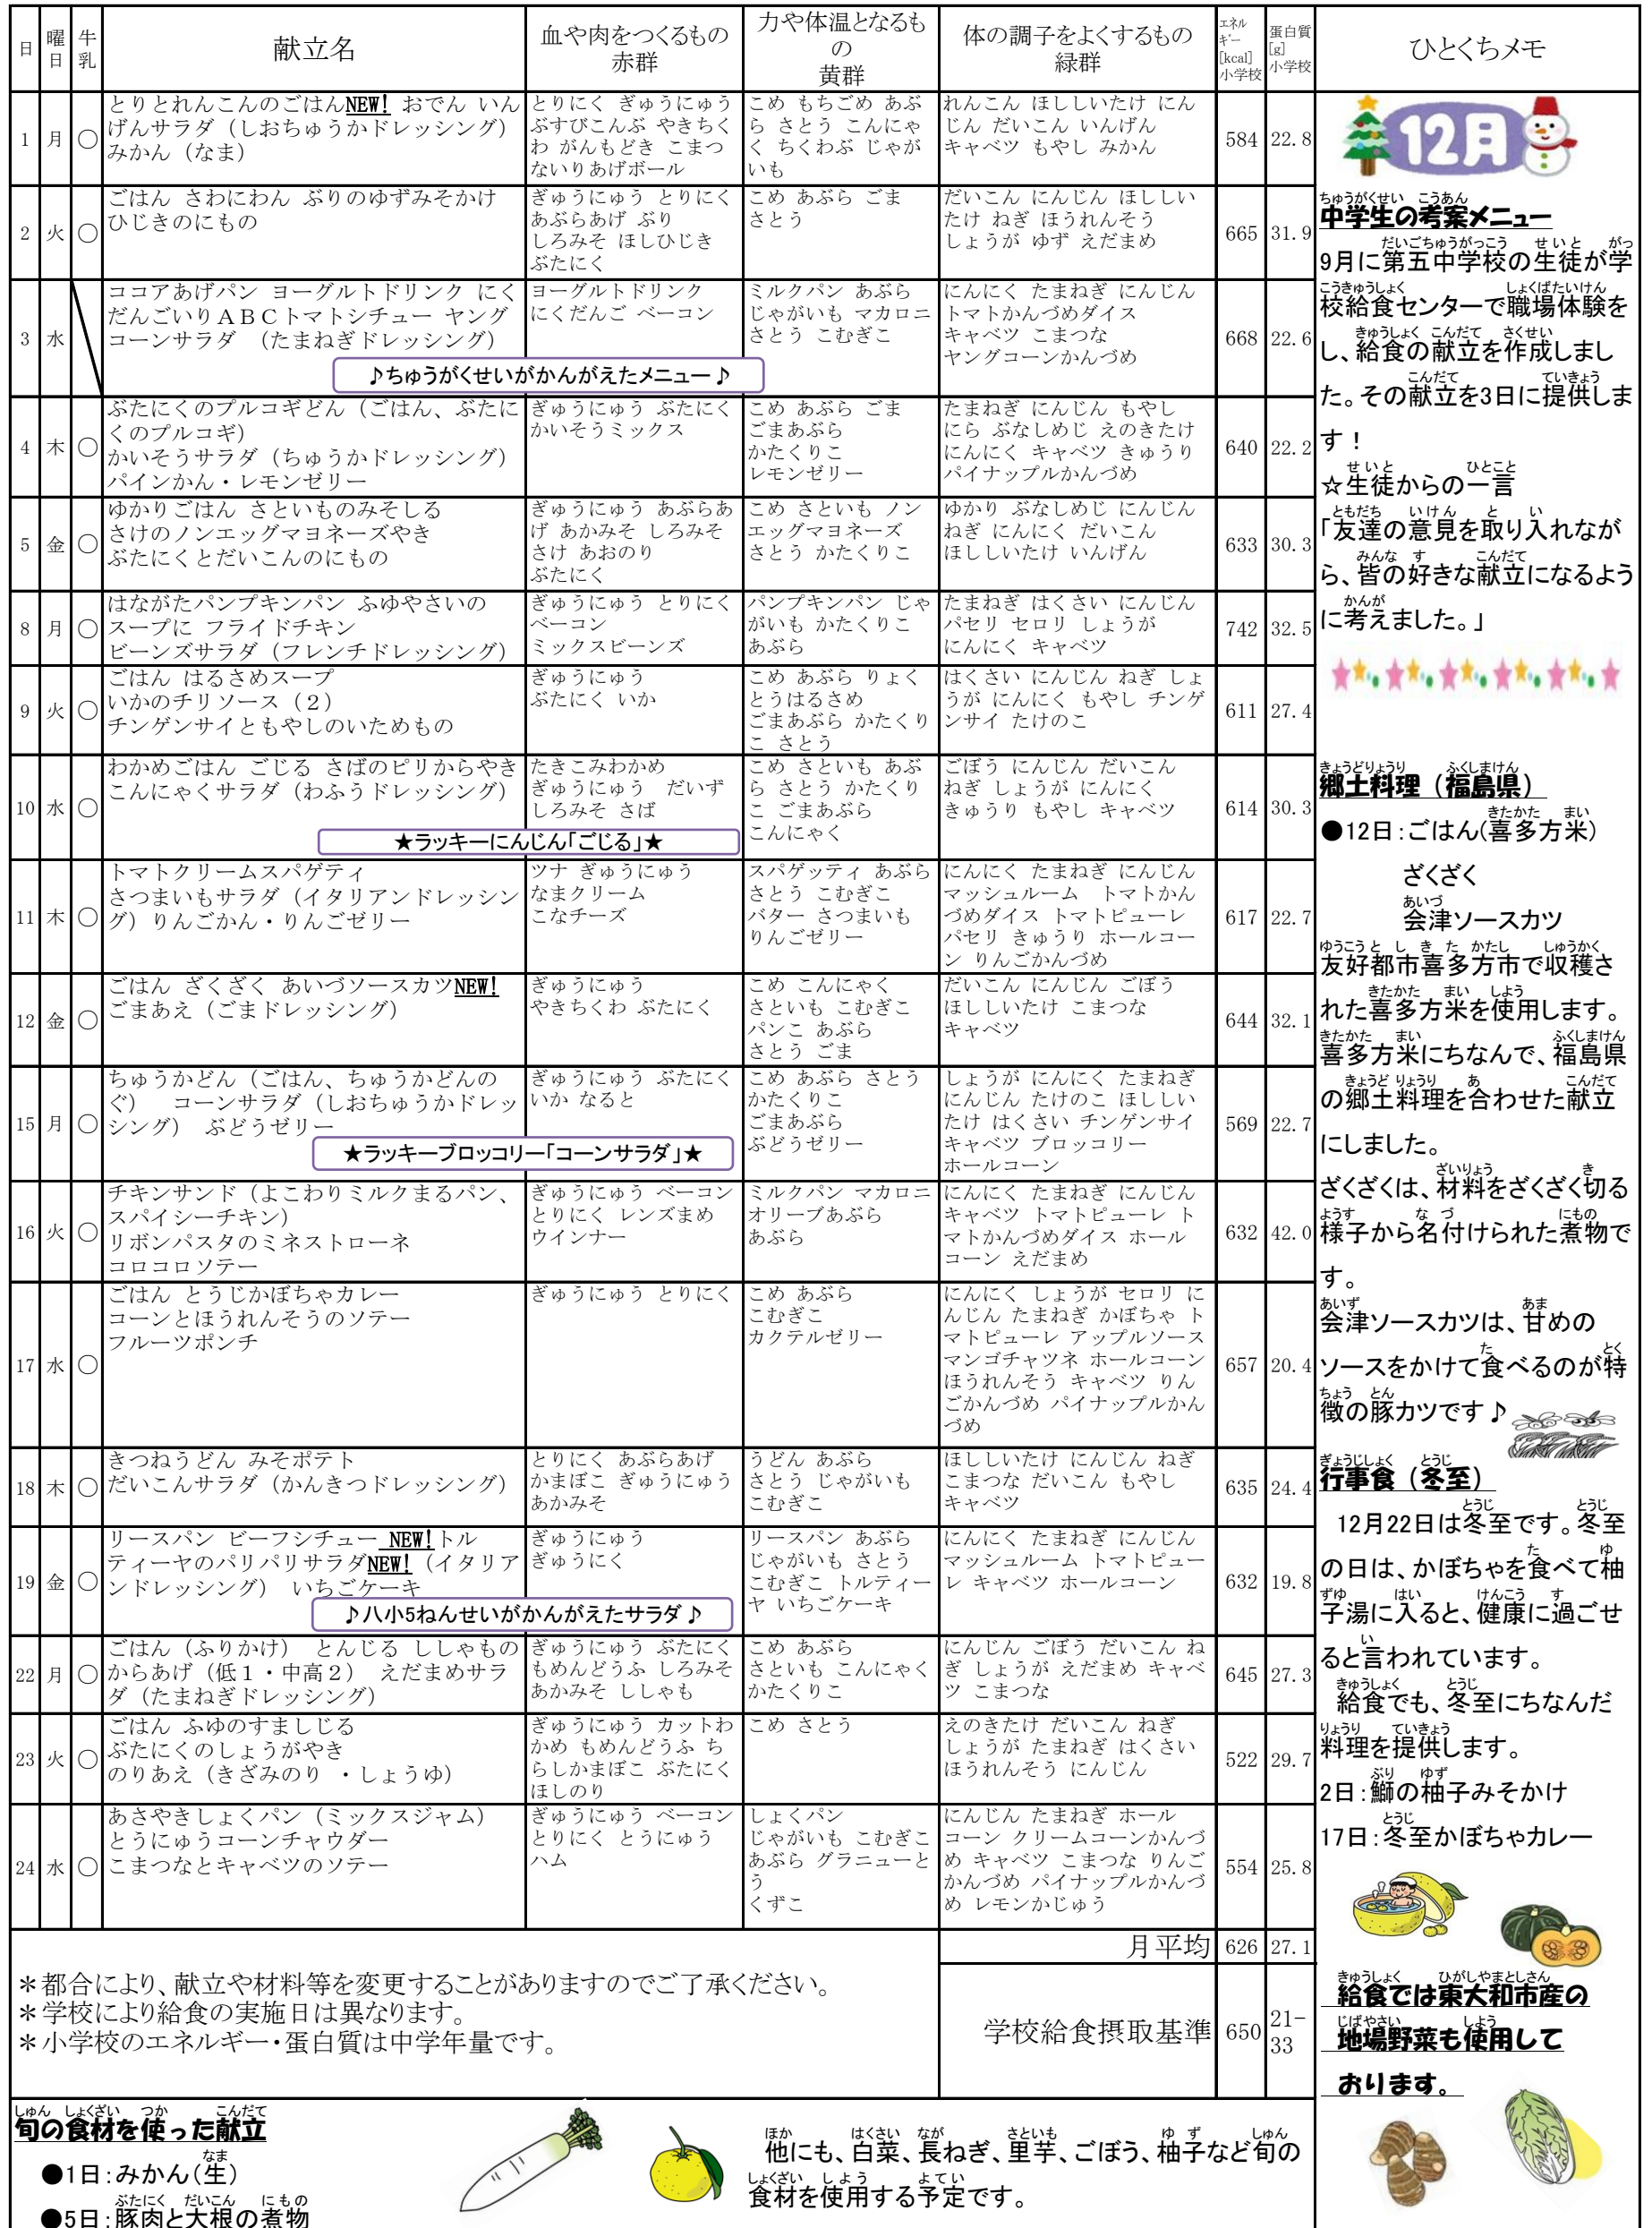 日 曜日 牛乳 献立名 血や肉をつくるもの 赤群 力や体温となるもの 黄群 体の調子をよくするもの 緑群 エネルギー [kcal] 小学校 蛋白質 [g] 小学校 ひとくちメモ
1 月 ○
とりとれんこんのごはんNEW! おでん いん
げんサラダ（しおちゅうかドレッシング）
みかん（なま）
とりにく ぎゅうにゅう
ぶすびこんぶ やきちく
わ がんもどき こまつ
ないりあげボール
こめ もちごめ あぶ
ら さとう こんにゃ
く ちくわぶ じゃが
いも
れんこん ほししいたけ にん
じん だいこん いんげん
キャベツ もやし みかん
584 22.8
2 火 ○
ごはん さわにわん ぶりのゆずみそかけ
ひじきのにもの
ぎゅうにゅう とりにく
あぶらあげ ぶり
しろみそ ほしひじき
ぶたにく
こめ あぶら ごま
さとう
だいこん にんじん ほししい
たけ ねぎ ほうれんそう
しょうが ゆず えだまめ
665 31.9
3 水
ココアあげパン ヨーグルトドリンク にく
だんごいりＡＢＣトマトシチュー ヤング
コーンサラダ （たまねぎドレッシング）
♪ちゅうがくせいがかんがえたメニュー♪
ヨーグルトドリンク
にくだんご ベーコン
ミルクパン あぶら
じゃがいも マカロニ
さとう こむぎこ
にんにく たまねぎ にんじん
トマトかんづめダイス
キャベツ こまつな
ヤングコーンかんづめ
668 22.6
4 木 ○
ぶたにくのプルコギどん（ごはん、ぶたに
くのプルコギ）
かいそうサラダ（ちゅうかドレッシング）
パインかん・レモンゼリー
ぎゅうにゅう ぶたにく
かいそうミックス
こめ あぶら ごま
ごまあぶら
かたくりこ
レモンゼリー
たまねぎ にんじん もやし
にら ぶなしめじ えのきたけ
にんにく キャベツ きゅうり
パイナップルかんづめ
640 22.2
5 金 ○
ゆかりごはん さといものみそしる
さけのノンエッグマヨネーズやき
ぶたにくとだいこんのにもの
ぎゅうにゅう あぶらあ
げ あかみそ しろみそ
さけ あおのり
ぶたにく
こめ さといも ノン
エッグマヨネーズ
さとう かたくりこ
ゆかり ぶなしめじ にんじん
ねぎ にんにく だいこん
ほししいたけ いんげん
633 30.3
8 月 ○
はながたパンプキンパン ふゆやさいの
スープに フライドチキン
ビーンズサラダ（フレンチドレッシング）
ぎゅうにゅう とりにく
ベーコン
ミックスビーンズ
パンプキンパン じゃ
がいも かたくりこ
あぶら
たまねぎ はくさい にんじん
パセリ セロリ しょうが
にんにく キャベツ
742 32.5
9 火 ○
ごはん はるさめスープ
いかのチリソース（２）
チンゲンサイともやしのいためもの
ぎゅうにゅう
ぶたにく いか
こめ あぶら りょく
とうはるさめ
ごまあぶら かたくり
こ さとう
はくさい にんじん ねぎ しょ
うが にんにく もやし チンゲ
ンサイ たけのこ
611 27.4
10 水 ○
わかめごはん ごじる さばのピリからやき
こんにゃくサラダ（わふうドレッシング）
★ラッキーにんじん「ごじる」★
たきこみわかめ
ぎゅうにゅう だいず
しろみそ さば
こめ さといも あぶ
ら さとう かたくり
こ ごまあぶら
こんにゃく
ごぼう にんじん だいこん
ねぎ しょうが にんにく
きゅうり もやし キャベツ
614 30.3
11 木 ○
トマトクリームスパゲティ
さつまいもサラダ（イタリアンドレッシン
グ）りんごかん・りんごゼリー
ツナ ぎゅうにゅう
なまクリーム
こなチーズ
スパゲッティ あぶら
さとう こむぎこ
バター さつまいも
りんごゼリー
にんにく たまねぎ にんじん
マッシュルーム トマトかん
づめダイス トマトピューレ
パセリ きゅうり ホールコー
ン りんごかんづめ
617 22.7
12 金 ○
ごはん ざくざく あいづソースカツNEW!
ごまあえ（ごまドレッシング）
ぎゅうにゅう
やきちくわ ぶたにく
こめ こんにゃく
さといも こむぎこ
パンこ あぶら
さとう ごま
だいこん にんじん ごぼう
ほししいたけ こまつな
キャベツ
644 32.1
15 月 ○
ちゅうかどん（ごはん、ちゅうかどんの
ぐ） コーンサラダ（しおちゅうかドレッ
シング） ぶどうゼリー
★ラッキーブロッコリー「コーンサラダ」★
ぎゅうにゅう ぶたにく
いか なると
こめ あぶら さとう
かたくりこ
ごまあぶら
ぶどうゼリー
しょうが にんにく たまねぎ
にんじん たけのこ ほししい
たけ はくさい チンゲンサイ
キャベツ ブロッコリー
ホールコーン
569 22.7
16 火 ○
チキンサンド（よこわりミルクまるパン、
スパイシーチキン）
リボンパスタのミネストローネ
コロコロソテー
ぎゅうにゅう ベーコン
とりにく レンズまめ
ウインナー
ミルクパン マカロニ
オリーブあぶら
あぶら
にんにく たまねぎ にんじん
キャベツ トマトピューレ ト
マトかんづめダイス ホール
コーン えだまめ
632 42.0
17 水 ○
ごはん とうじかぼちゃカレー
コーンとほうれんそうのソテー
フルーツポンチ
ぎゅうにゅう とりにく
こめ あぶら
こむぎこ
カクテルゼリー
にんにく しょうが セロリ に
んじん たまねぎ かぼちゃ ト
マトピューレ アップルソース
マンゴチャツネ ホールコーン
ほうれんそう キャベツ りん
ごかんづめ パイナップルかん
づめ
657 20.4
18 木 ○
きつねうどん みそポテト
だいこんサラダ（かんきつドレッシング）
とりにく あぶらあげ
かまぼこ ぎゅうにゅう
あかみそ
うどん あぶら
さとう じゃがいも
こむぎこ
ほししいたけ にんじん ねぎ
こまつな だいこん もやし
キャベツ
635 24.4
19 金 ○
リースパン ビーフシチュー NEW!トル
ティーヤのパリパリサラダNEW!（イタリア
ンドレッシング） いちごケーキ
♪八小5ねんせいがかんがえたサラダ♪
ぎゅうにゅう
ぎゅうにく
リースパン あぶら
じゃがいも さとう
こむぎこ トルティー
ヤ いちごケーキ
にんにく たまねぎ にんじん
マッシュルーム トマトピュー
レ キャベツ ホールコーン
632 19.8
22 月 ○
ごはん（ふりかけ） とんじる ししゃもの
からあげ（低１・中高２） えだまめサラ
ダ（たまねぎドレッシング）
ぎゅうにゅう ぶたにく
もめんどうふ しろみそ
あかみそ ししゃも
こめ あぶら
さといも こんにゃく
かたくりこ
にんじん ごぼう だいこん ね
ぎ しょうが えだまめ キャベ
ツ こまつな
645 27.3
23 火 ○
ごはん ふゆのすましじる
ぶたにくのしょうがやき
のりあえ（きざみのり ・しょうゆ）
ぎゅうにゅう カットわ
かめ もめんどうふ ち
らしかまぼこ ぶたにく
ほしのり
こめ さとう
えのきたけ だいこん ねぎ
しょうが たまねぎ はくさい
ほうれんそう にんじん
522 29.7
24 水 ○
あさやきしょくパン（ミックスジャム）
とうにゅうコーンチャウダー
こまつなとキャベツのソテー
ぎゅうにゅう ベーコン
とりにく とうにゅう
ハム
しょくパン
じゃがいも こむぎこ
あぶら グラニューと
う
くずこ
にんじん たまねぎ ホール
コーン クリームコーンかんづ
め キャベツ こまつな りんご
かんづめ パイナップルかんづ
め レモンかじゅう
554 25.8
月平均 626 27.1
学校給食摂取基準 650 21-33
＊都合により、献立や材料等を変更することがありますのでご了承ください。
＊学校により給食の実施日は異なります。
＊小学校のエネルギー・蛋白質は中学年量です。
12月
ちゅうがくせい こうあん
中学生の考案メニュー
だいごちゅうがっこう せいと がっ
9月に第五中学校の生徒が学
こうきゅうしょく しょくばたいけん
校給食センターで職場体験を
きゅうしょく こんだて さくせい
し、給食の献立を作成しまし
こんだて ていきょう
た。その献立を3日に提供しま
す！
せいと ひとこと
☆生徒からの一言
ともだち いけん と い
「友達の意見を取り入れなが
みんな す こんだて
ら、皆の好きな献立になるよう
かんが
に考えました。」
きょうどりょうり ふくしまけん
郷土料理（福島県）
きたかた まい
●12日：ごはん(喜多方米)
ざくざく
あいづ
会津ソースカツ
ゆうこうとし きたかたし しゅうかく
友好都市喜多方市で収穫さ
きたかた まい しよう
れた喜多方米を使用します。
きたかた まい ふくしまけん
喜多方米にちなんで、福島県
きょうど りょうり あ こんだて
の郷土料理を合わせた献立
にしました。
ざいりょう き
ざくざくは、材料をざくざく切る
ようす な づ にもの
様子から名付けられた煮物で
す。
あいず あま
会津ソースカツは、甘めの
た とく
ソースをかけて食べるのが特
ちょう とん
徴の豚カツです♪
ぎょうじしょく とうじ
行事食（冬至）
とうじ とうじ
12月22日は冬至です。冬至
た ゆ
の日は、かぼちゃを食べて柚
ずゆ はい けんこう す
子湯に入ると、健康に過ごせ
い
ると言われています。
きゅうしょく とうじ
給食でも、冬至にちなんだ
りょうり ていきょう
料理を提供します。
ぶり ゆず
2日：鰤の柚子みそかけ
とうじ
17日：冬至かぼちゃカレー
きゅうしょく ひがしやまとしさん
給食では東大和市産の
じばやさい しよう
地場野菜も使用して
おります。
しゅん しょくざい つか こんだて
旬の食材を使った献立
なま
●1日：みかん（生）
ぶたにく だいこん にもの
●5日：豚肉と大根の煮物
ほか はくさい なが さといも ゆ ず しゅん
他にも、白菜、長ねぎ、里芋、ごぼう、柚子など旬の
しょくざい しよう よてい
食材を使用する予定です。